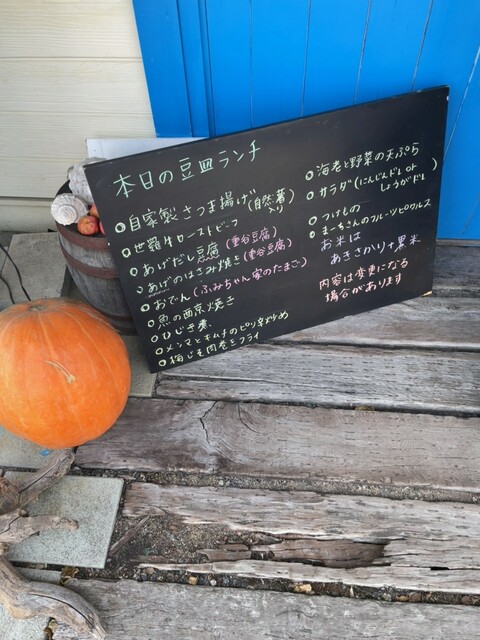 本日の豆皿ランチ
自家製さつま揚げ(自然薯入り)
世羅牛ローストビーフ
あげだし豆腐(重谷豆腐)
あげのはさみ焼き(重谷豆腐)
おでん(ふみちゃん家のたまご)
魚の西京焼き
ひじき煮
メンマとキムチのピリ辛炒め
梅しそ肉巻きフライ
海老と野菜の天ぷら
サラダ(にんじんドレor
しょうがドレ)
つけもの
まーちさんのフルーツピクルス
お米は
あきさかり+黒米
内容は変更になる
場合があります